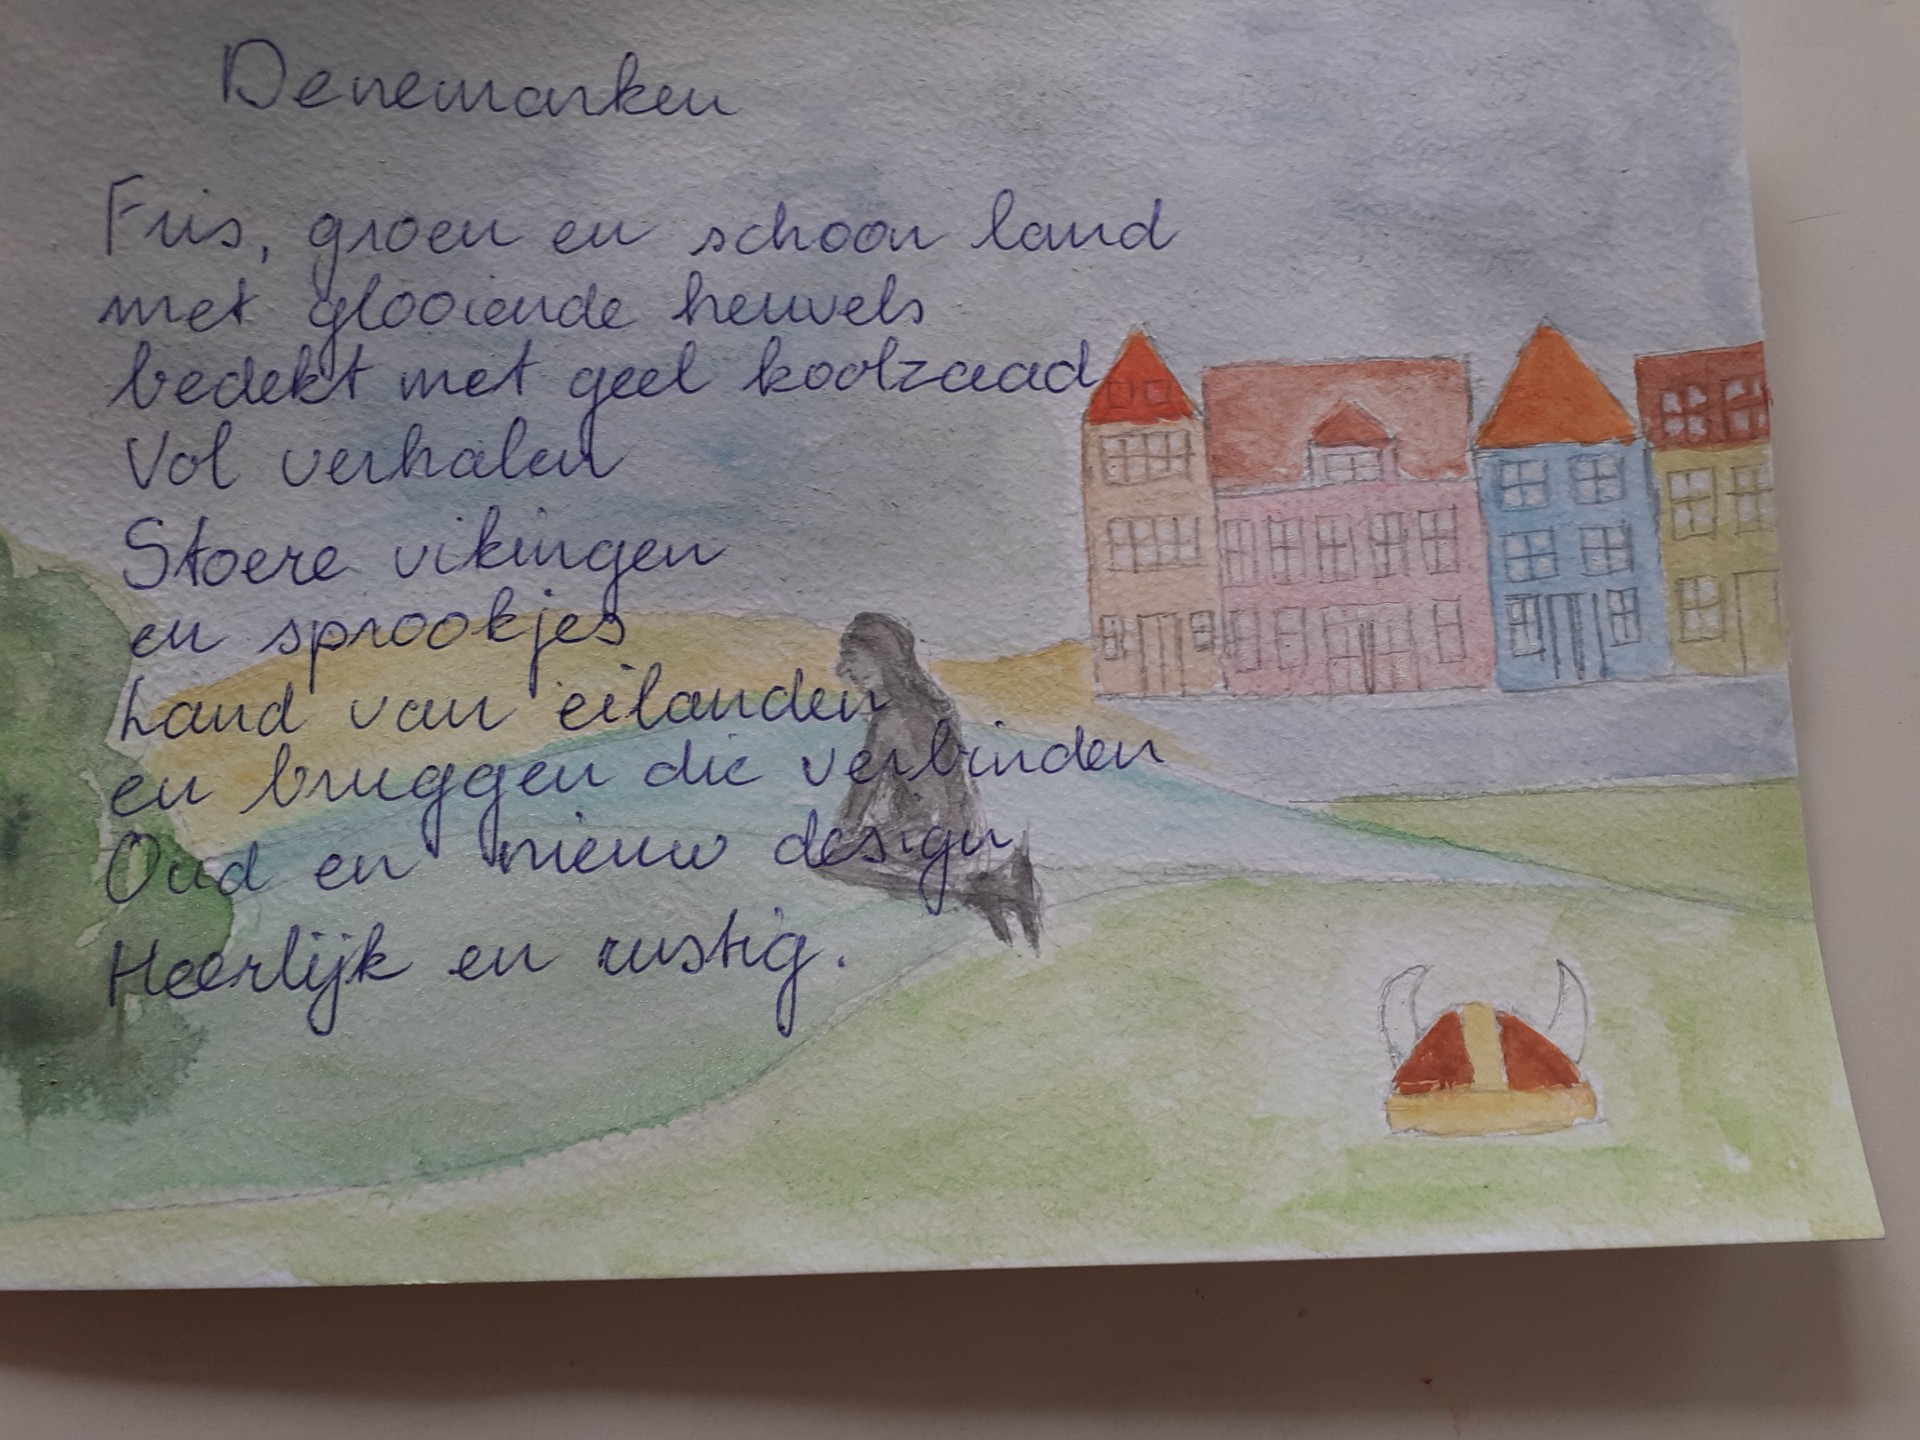 Denemarken
Fris, groen en schoon land
met glooiende heuvels
bedekt met geel koolzaad
Vol verhalen
Stoere vikingen
en sprookjes
Land van eilanden
en bruggen die verbinden
Oud en nieuw design
Heerlijk en rustig.